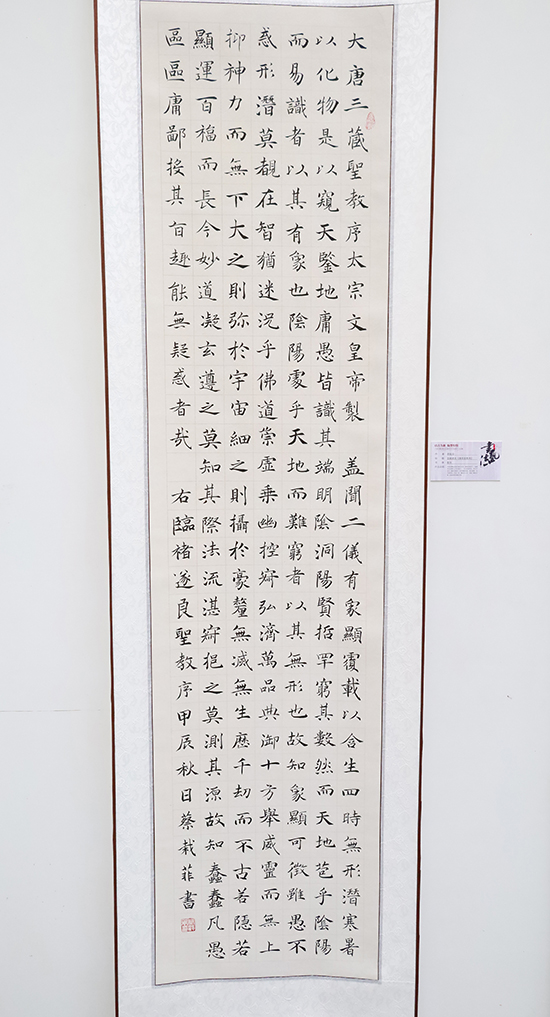 大唐三藏聖教序太宗文皇帝製 蓋聞二儀有象顯覆載以含生四時無形潛寒暑
以化物是以窺天鑒地庸愚皆識其端明陰洞陽賢哲罕窮其數然而天地苞乎陰陽
而易識者以其有象也陰陽處乎天地而難窮者以其無形也故知象顯可徵雖愚不
惑形潛莫覩在智猶迷況乎佛道崇虛乘幽控寂弘濟萬品典御十方舉威靈而無上
抑神力而無下大之則弥於宇宙細之則攝於豪釐無滅無生歷千劫而不古若隱若
顯運百福而長今妙道凝玄遵之莫知其際法流湛寂挹之莫測其源故知蠢蠢凡愚
區區庸鄙投其旨趣能無疑惑者哉 右臨褚遂良聖教序甲辰秋日蔡栽菲書
書法